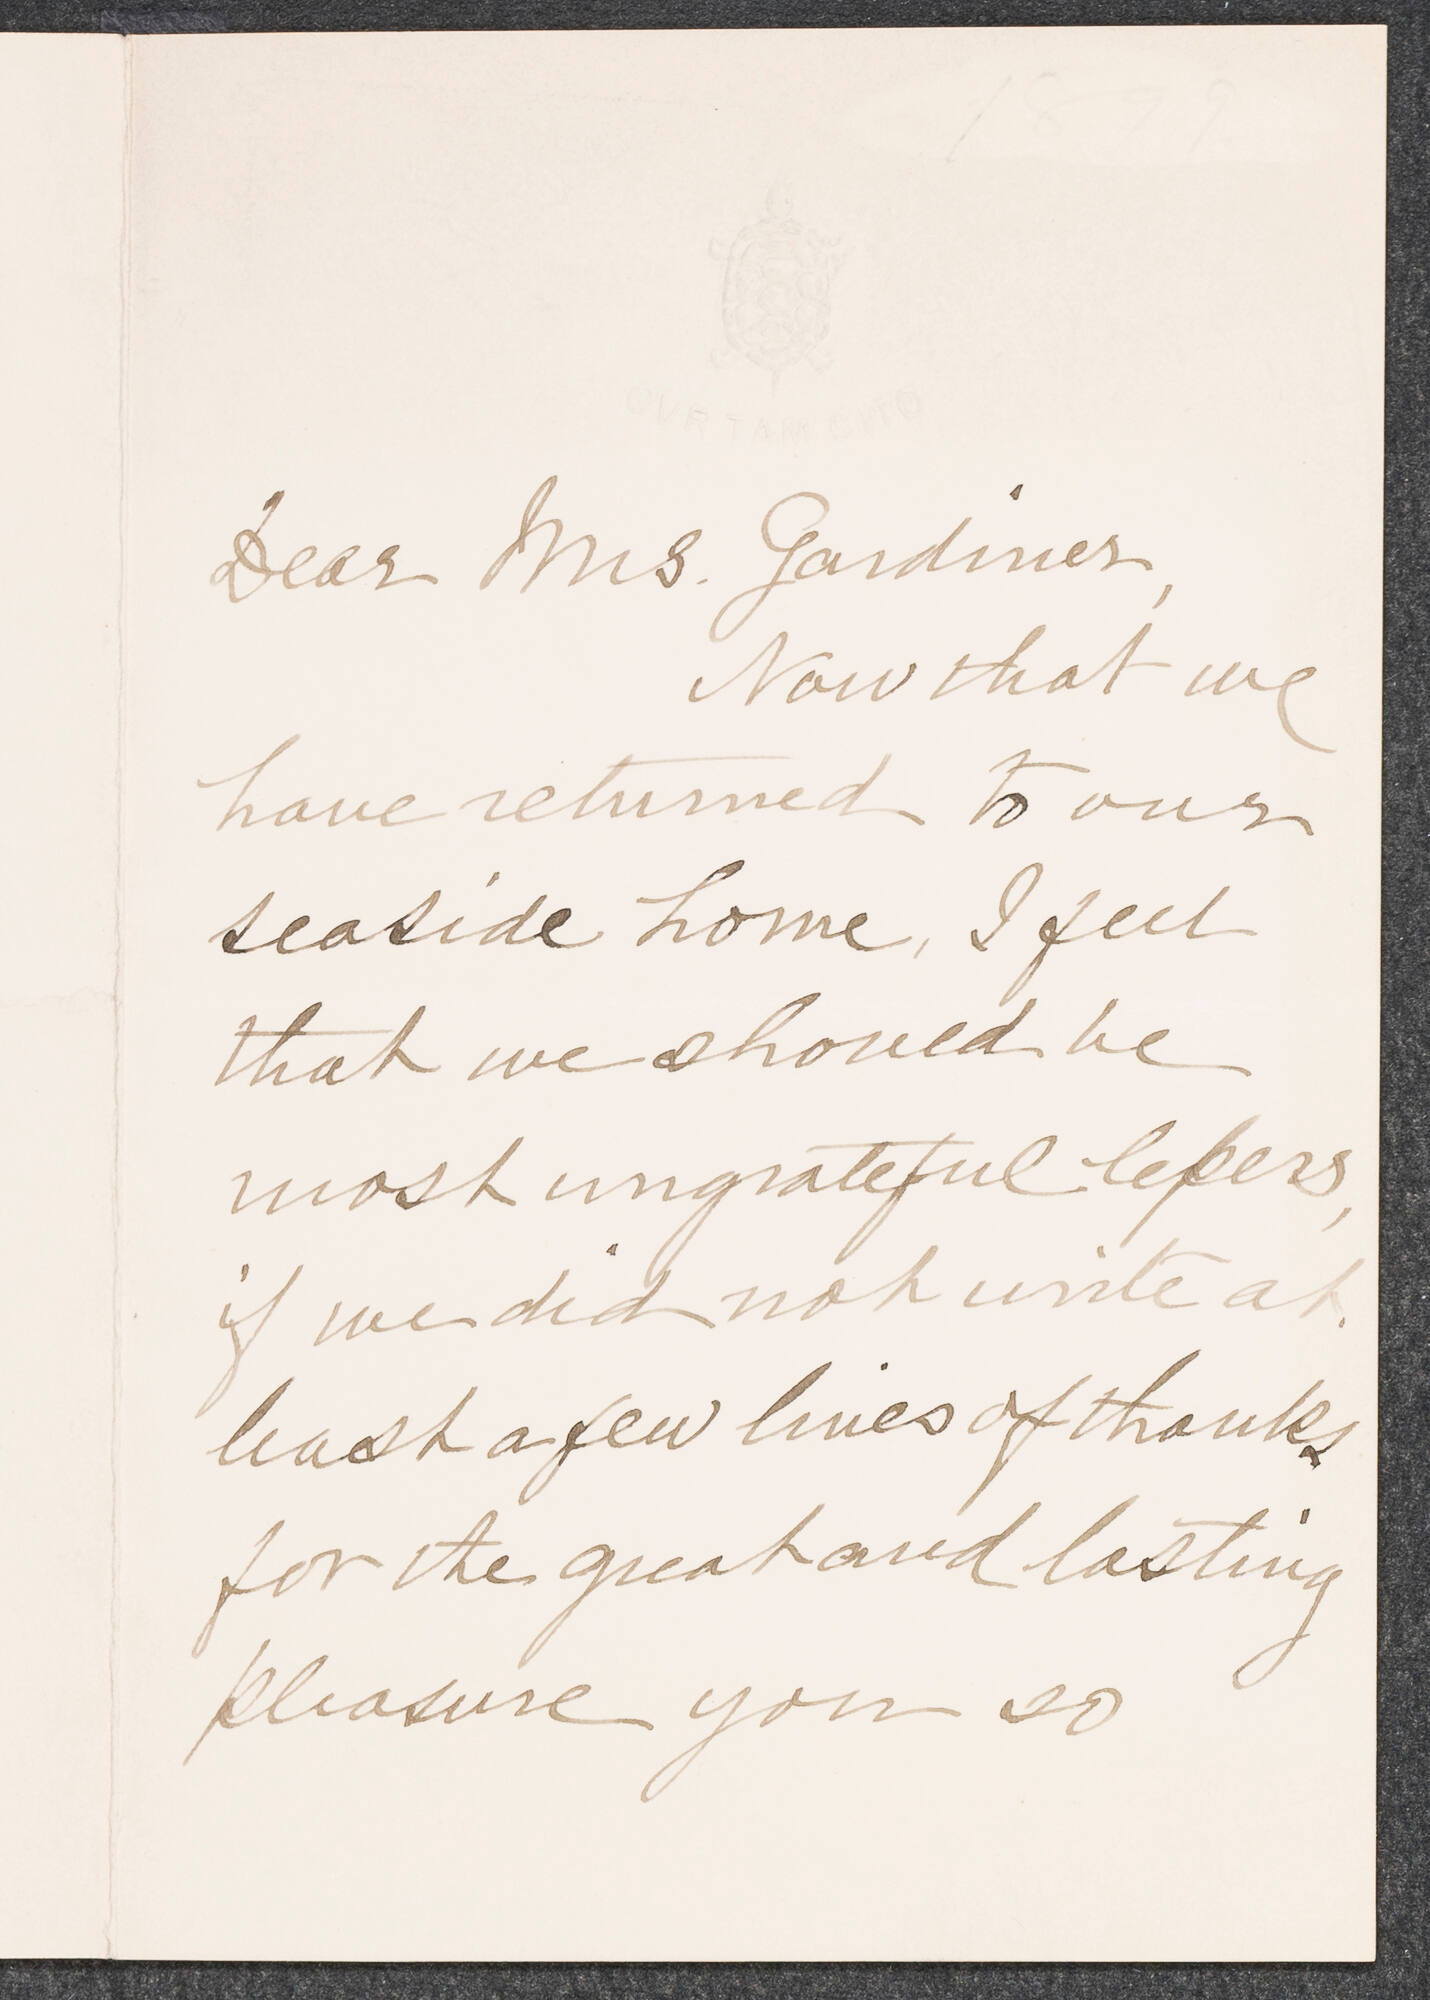 1899
CVRTAMENTO
Dear Mrs. Gardiner,
Now that we
have returned to our
seaside home, I feel
that we should be
most ungrateful lepers,
if we did not write at
least a few lines of thanks
for the great and lasting
pleasure you so